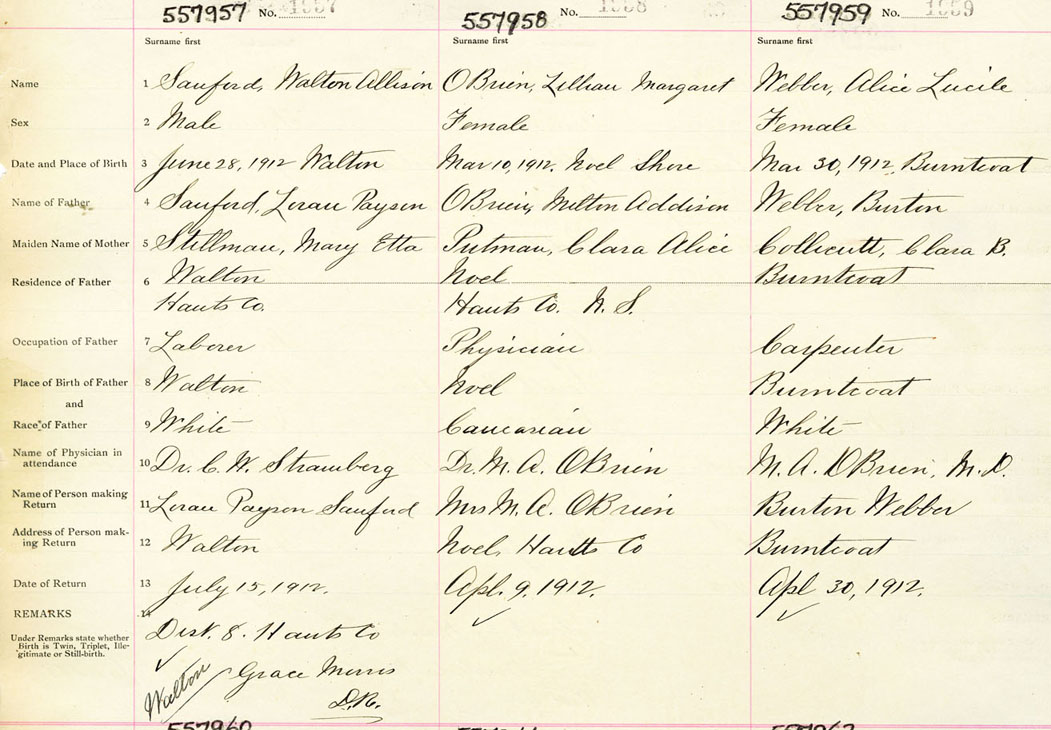 557957 No. 1557 557958 No. 1558 557959 No. 1559
Surname first Surname first Surname first
Name 1 Sanford, Walton Allison OBrien, Lillian Margaret Webber, Alice Lucile
Sex 2 Male Female Female
Date and Place of Birth 3 June 28, 1912 Walton Mar 10, 1912. Noel Shore Mar 30, 1912, Burntcoat
Name of Father 4 Sanford, Loran Payson OBrien, Milton Addison Webber, Burton
Maiden Name of Mother 5 Stillman, Mary Etta Putman, Clara Alice Collicutt, Clara B.
Residence of Father 6 Walton Noel Burntcoat
Hants Co. Hants Co. N. S.
Occupation of Father 7 Laborer Physician Carpenter
Place of Birth of Father 8 Walton Noel Burntcoat
and
Race of Father 9 White Caucasian White
Name of Physician in attendance 10 Dr. C. W. Stramberg Dr. M. A. OBrien M. A. OBrien, M. D.
Name of Person making Return 11 Loran Payson Sanford Mrs M. A. OBrien Burton Webber
Address of Person mak-
ing Return 12 Walton Noel, Hants Co Burntcoat
Date of Return 13 July 15, 1912. Apl. 9, 1912. Apl 30, 1912.
REMARKS 14
Under Remarks state whether
Birth is Twin, Triplet, Ille-
gitimate or Still-birth.
Dist. 8. Hants Co
Walton Grace Morris
D.R.
557960